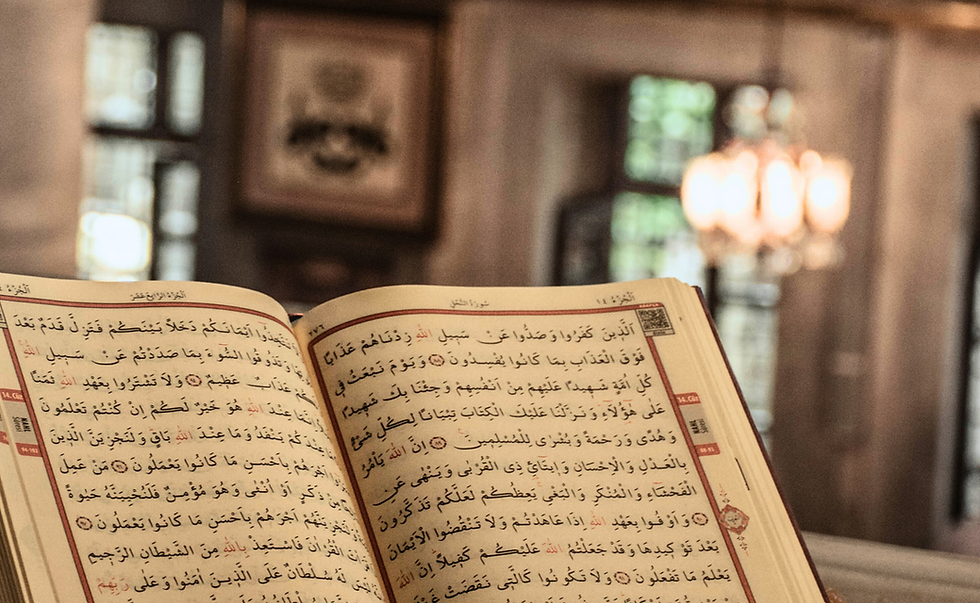 اَلْجُزْءُ ١٤
سُورَةُ النَّحْلِ
٢٧٦
اَلَّذِينَ كَفَرُوا وَصَدُّوا عَنْ سَبِيلِ اللّٰهِ زِدْنَاهُمْ عَذَابًا
فَوْقَ الْعَذَابِ بِمَا كَانُوا يُفْسِدُونَ ﴿٨٨﴾ وَيَوْمَ نَبْعَثُ فِي
كُلِّ اُمَّةٍ شَهِيدًا عَلَيْهِمْ مِنْ اَنْفُسِهِمْ وَجِئْنَا بِكَ شَهِيدًا
عَلٰى هٰٓؤُلَٓاءِ وَنَزَّلْنَا عَلَيْكَ الْكِتَابَ تِبْيَانًا لِكُلِّ شَيْءٍ
وَهُدًى وَرَحْمَةً وَبُشْرٰى لِلْمُسْلِمِينَ ﴿٨٩﴾ اِنَّ اللّٰهَ يَأْمُرُ
بِالْعَدْلِ وَالْاِحْسَانِ وَاِيتَٓائِ ذِي الْقُرْبٰى وَيَنْهٰى عَنِ
الْفَحْشَٓاءِ وَالْمُنْكَرِ وَالْبَغْيِ يَعِظُكُمْ لَعَلَّكُمْ تَذَكَّرُونَ
﴿٩٠﴾ وَاَوْفُوا بِعَهْدِ اللّٰهِ اِذَا عَاهَدْتُمْ وَلَا تَنْقُضُوا الْاَيْمَانَ
بَعْدَ تَوْكِيدِهَا وَقَدْ جَعَلْتُمُ اللّٰهَ عَلَيْكُمْ كَفِيلًا اِنَّ اللّٰهَ
يَعْلَمُ مَا تَفْعَلُونَ ﴿٩١﴾ وَلَا تَكُونُوا كَالَّتِي نَقَضَتْ
14. Cüz
اَلْجُزْءُ الرَّابِعَ عَشَرَ
اَيْمَانَكُمْ دَخَلًا بَيْنَكُمْ فَتَزِلَّ قَدَمٌ بَعْدَ
وَتَذُوقُوا السُّٓوءَ بِمَا صَدَدْتُمْ عَنْ سَبِيلِ اللّٰهِ
عَذَابٌ عَظِيمٌ ﴿٩٤﴾ وَلَا تَشْتَرُوا بِعَهْدِ اللّٰهِ ثَمَنًا
عِنْدَ اللّٰهِ هُوَ خَيْرٌ لَكُمْ اِنْ كُنْتُمْ تَعْلَمُونَ
يَنْفَدُ وَمَا عِنْدَ اللّٰهِ بَاقٍ وَلَنَجْزِيَنَّ الَّذِينَ
اَجْرَهُمْ بِاَحْسَنِ مَا كَانُوا يَعْمَلُونَ ﴿٩٦﴾ مَنْ عَمِلَ
ذَكَرٍ اَوْ اُنْثٰى وَهُوَ مُؤْمِنٌ فَلَنُحْيِيَنَّهُ حَيٰوةً
اَجْرَهُمْ بِاَحْسَنِ مَا كَانُوا يَعْمَلُونَ ﴿٩٧﴾
الْقُرْاٰنَ فَاسْتَعِذْ بِاللّٰهِ مِنَ الشَّيْطَانِ الرَّجِيمِ
لَهُ سُلْطَانٌ عَلَى الَّذِينَ اٰمَنُوا وَعَلٰى رَبِّهِمْ
14. Cüz